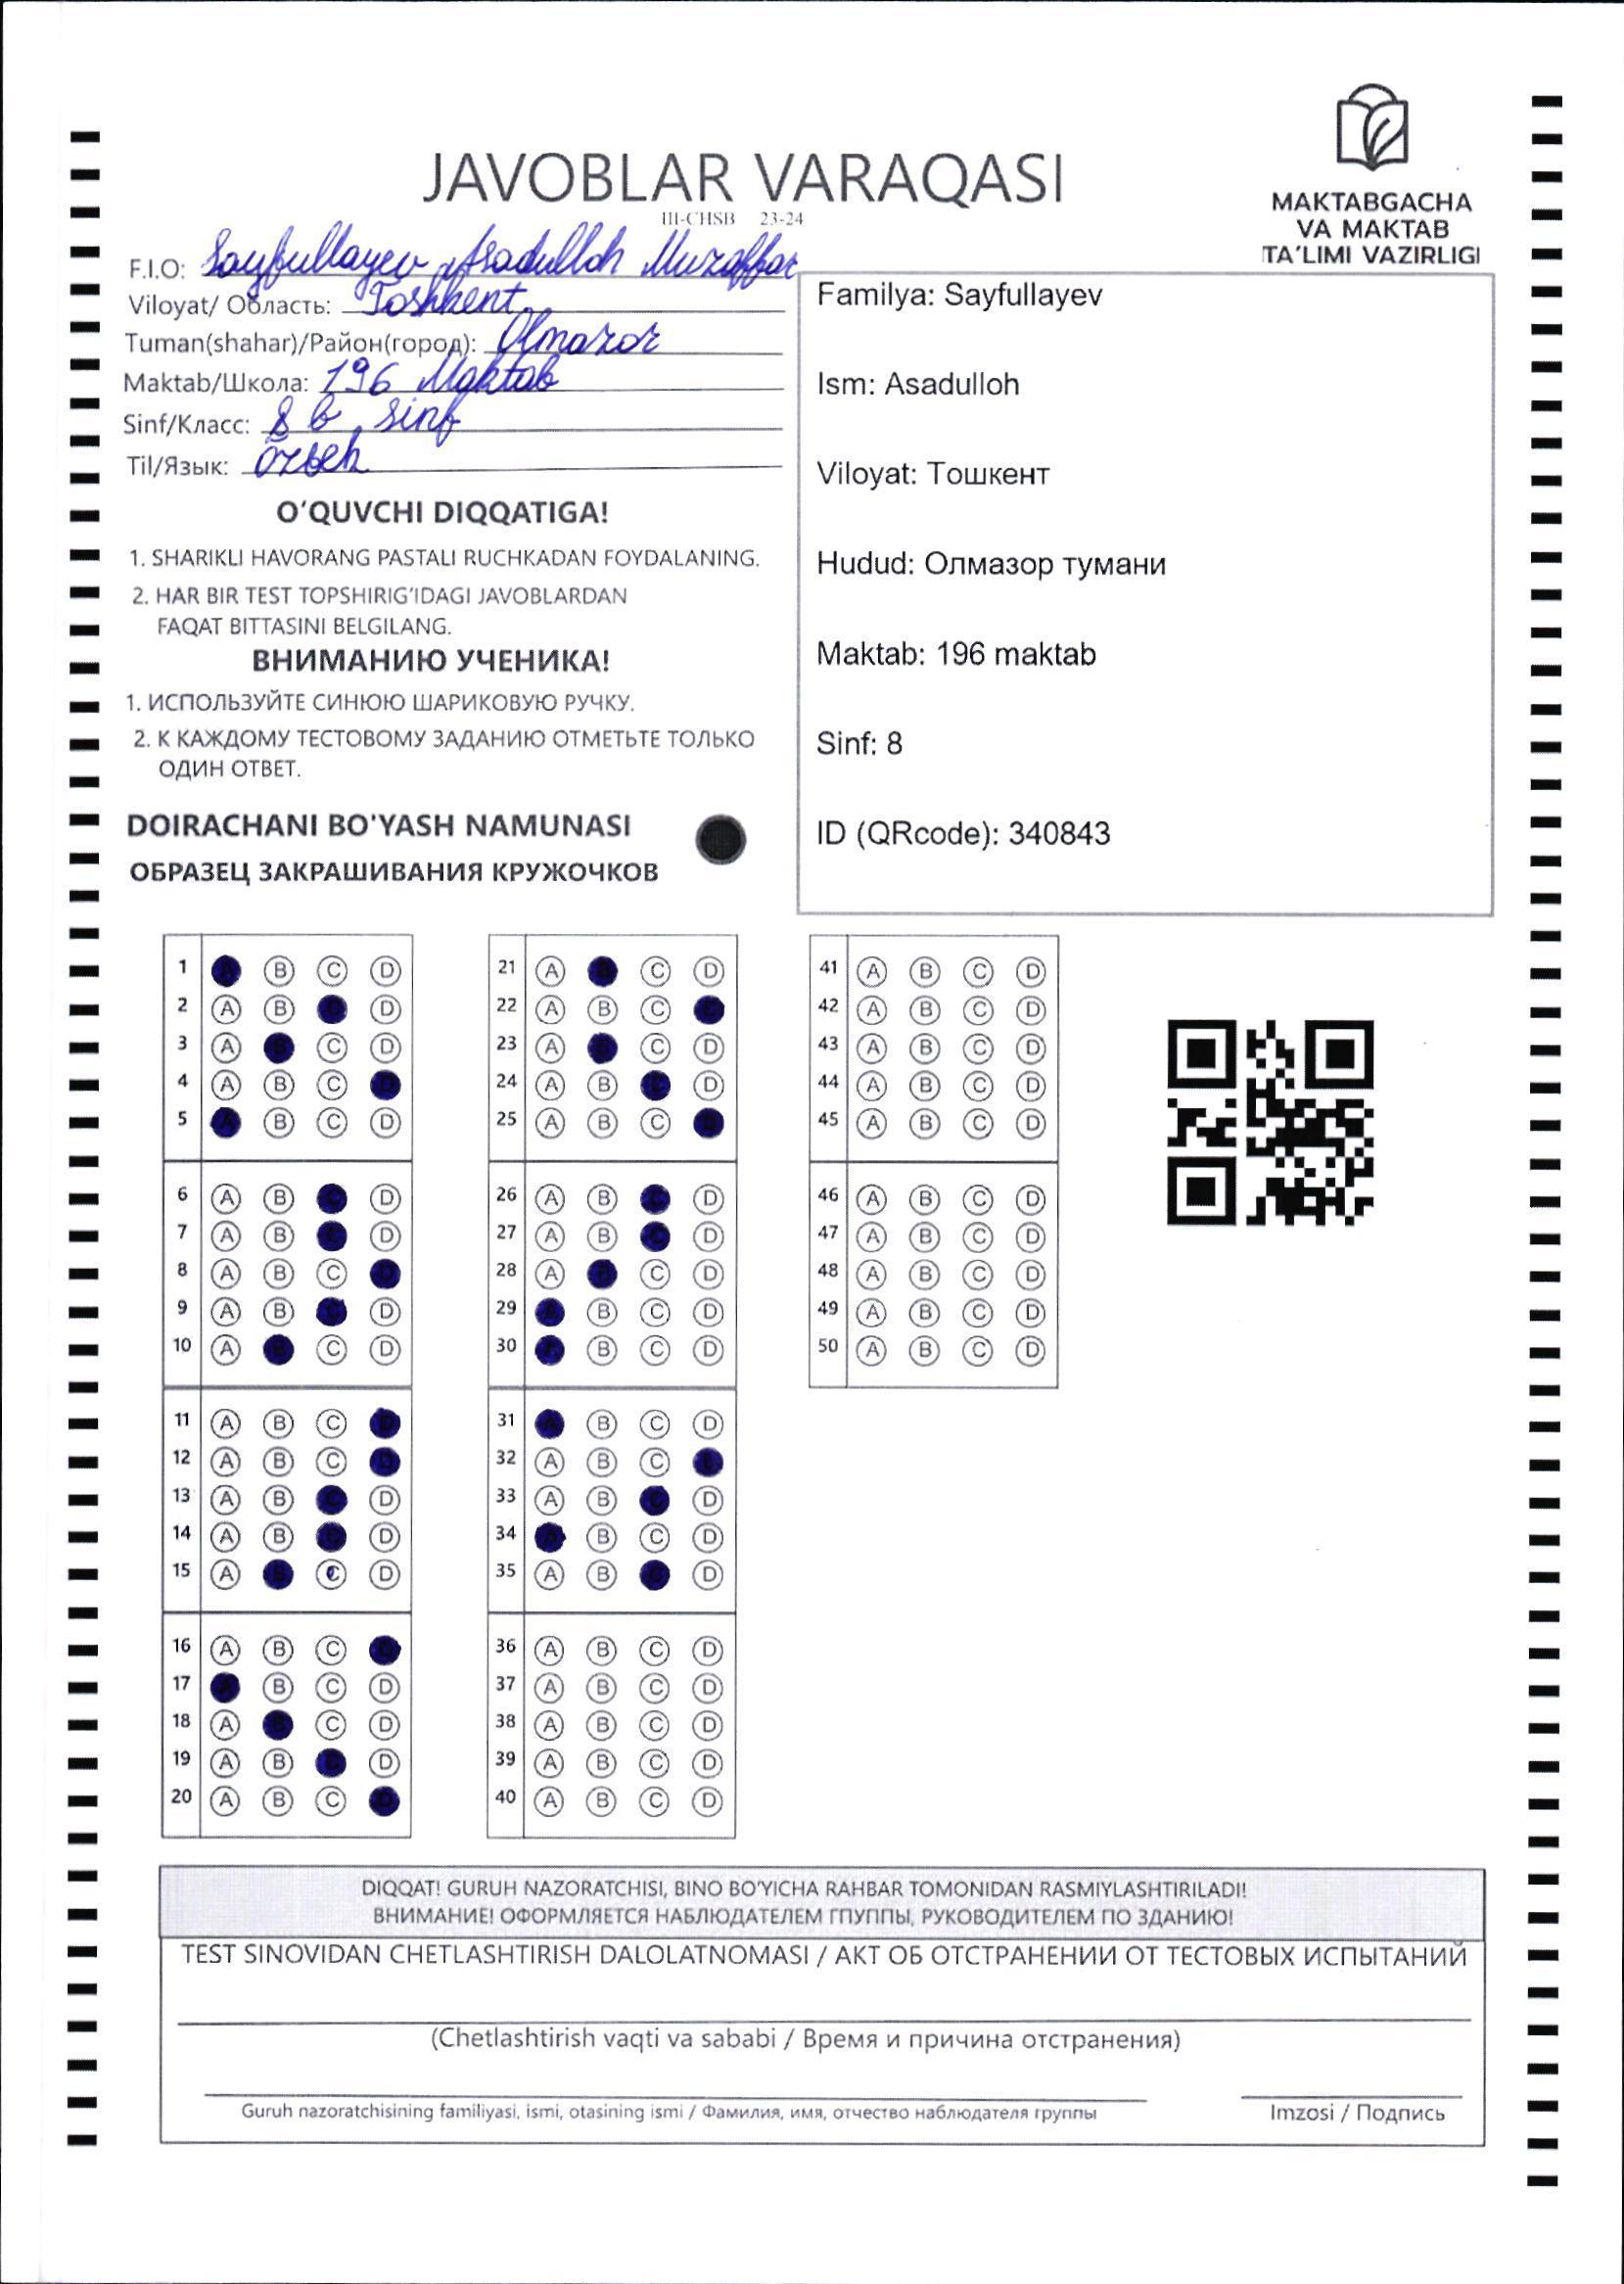 JAVOBLAR VARAQASI
III-CHSB 23-24
MAKTABGACHA
VA MAKTAB
TA'LIMI VAZIRLIGI
F.I.O: Sayfullayev Asadulloh Muzaffar
Viloyat/ Область: Toshkent
Tuman(shahar)/Район(город): Olmazor
Maktab/Школа: 196 Maktab
Sinf/Класс: 8 b sinf
Til/Язык: Özbek
O'QUVCHI DIQQATIGA!
1. SHARIKLI HAVORANG PASTALI RUCHKADAN FOYDALANING.
2. HAR BIR TEST TOPSHIRIG'IDAGI JAVOBLARDAN
FAQAT BITTASINI BELGILANG.
ВНИМАНИЮ УЧЕНИКА!
1. ИСПОЛЬЗУЙТЕ СИНЮЮ ШАРИКОВУЮ РУЧКУ.
2. К КАЖДОМУ ТЕСТОВОМУ ЗАДАНИЮ ОТМЕТЬТЕ ТОЛЬКО
ОДИН ОТВЕТ.
DOIRACHANI BO'YASH NAMUNASI
ОБРАЗЕЦ ЗАКРАШИВАНИЯ КРУЖОЧКОВ
Familya: Sayfullayev
Ism: Asadulloh
Viloyat: Тошкент
Hudud: Олмазор тумани
Maktab: 196 maktab
Sinf: 8
ID (QRcode): 340843
1 A B C D
2 A B C D
3 A B C D
4 A B C D
5 A B C D
6 A B C D
7 A B C D
8 A B C D
9 A B C D
10 A B C D
11 A B C D
12 A B C D
13 A B C D
14 A B C D
15 A B C D
16 A B C D
17 A B C D
18 A B C D
19 A B C D
20 A B C D
21 A B C D
22 A B C D
23 A B C D
24 A B C D
25 A B C D
26 A B C D
27 A B C D
28 A B C D
29 A B C D
30 A B C D
31 A B C D
32 A B C D
33 A B C D
34 A B C D
35 A B C D
36 A B C D
37 A B C D
38 A B C D
39 A B C D
40 A B C D
41 A B C D
42 A B C D
43 A B C D
44 A B C D
45 A B C D
46 A B C D
47 A B C D
48 A B C D
49 A B C D
50 A B C D
DIQQAT! GURUH NAZORATCHISI, BINO BO'YICHA RAHBAR TOMONIDAN RASMIYLASHTIRILADI!
ВНИМАНИЕ! ОФОРМЛЯЕТСЯ НАБЛЮДАТЕЛЕМ ГПУППЫ, РУКОВОДИТЕЛЕМ ПО ЗДАНИЮ!
TEST SINOVIDAN CHETLASHTIRISH DALOLATNOMASI / АКТ ОБ ОТСТРАНЕНИИ ОТ ТЕСТОВЫХ ИСПЫТАНИЙ
(Chetlashtirish vaqti va sababi / Время и причина отстранения)
Guruh nazoratchisining familiyasi, ismi, otasining ismi / Фамилия, имя, отчество наблюдателя группы
Imzosi / Подпись